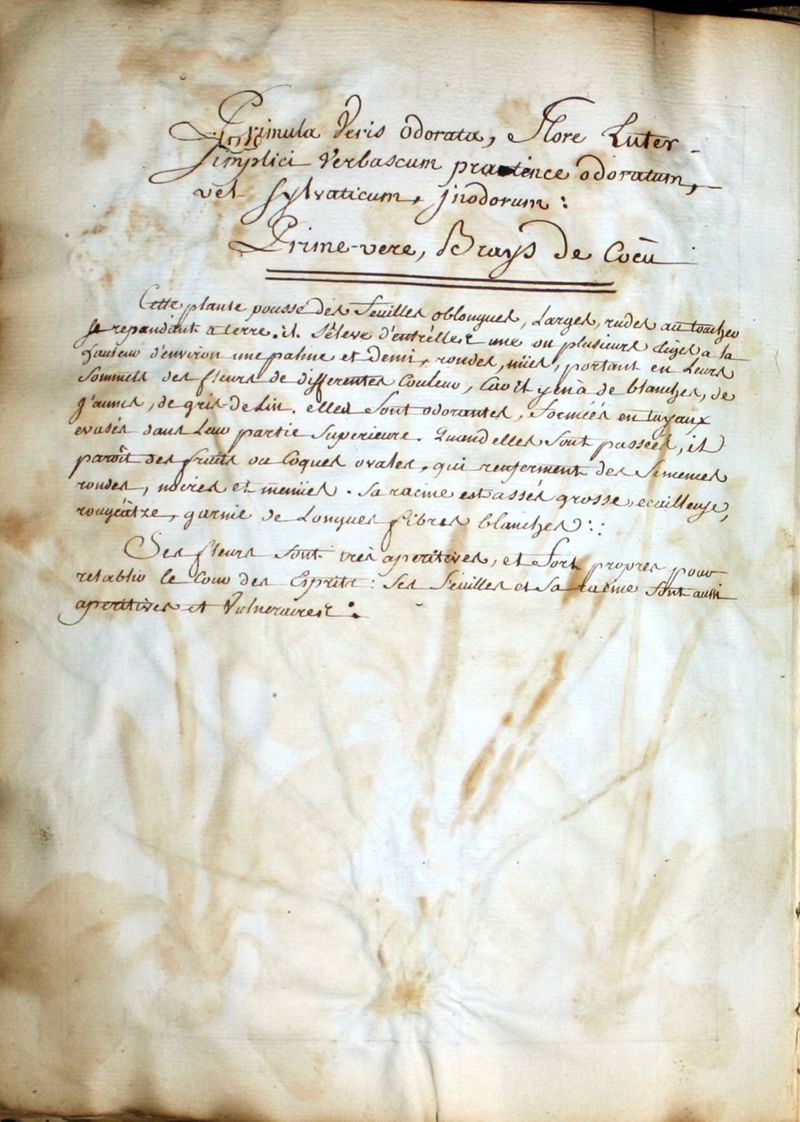 Primula Veris odorata, Flore Luter-
Simplici Verbascum pratence odoratum,
vel sylvaticum, jnodorum:
Prime-vere, Brays de Cocu
Cette plante pousse des feuilles oblongues, Larges, rudes au toucher
se repandant a terre. il s'éleve d'entr'elles une ou plusieurs tiges a la
hauteur d'environ une palme et demi, rondes, nües, portant en Leurs
Sommets des fleurs de differentes Couleur, Car il y en à de blanches, de
j'aunes, de gris-de-Lin. elles sont odorantes, formées en tuyaux
evasés dans Leur partie superieure. Quand elles sont passées, il
paroît des fruits ou Coques ovales, qui renferment des semences
rondes, noires et menües. Sa racine est assés grosse, ecailleuse,
rougeâtre, garnie de Longues fibres blanches:
Ses fleurs sont très aperitives, et fort propres pour
retablir le Cour des Esprits: Ses feuilles et Sa racine sont aussi
aperitives et Vulneraires: